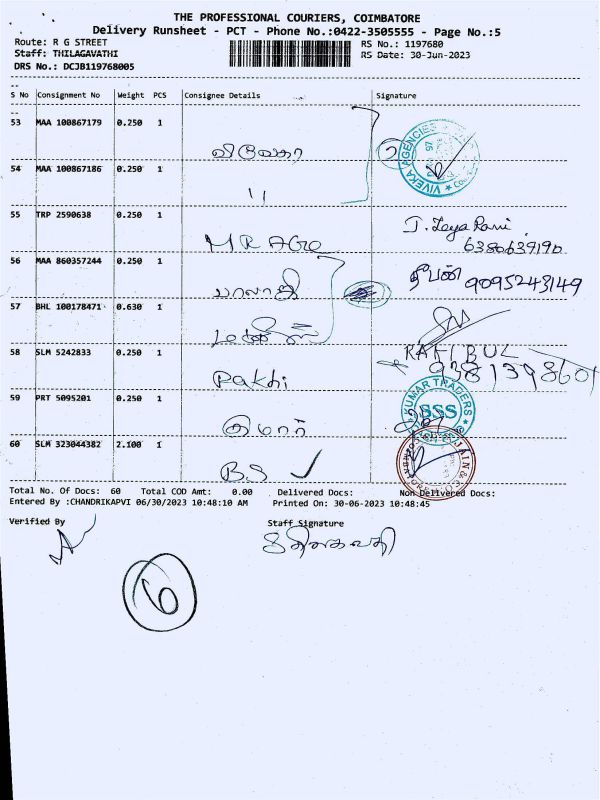 THE PROFESSIONAL COURIERS, COIMBATORE
Delivery Runsheet - PCT - Phone No.:0422-3505555 - Page No.:5
Route: R G STREET
Staff: THILAGAVATHI
DRS No.: DCJB119768005
RS No.: 1197680
RS Date: 30-Jun-2023
S No Consignment No Weight PCS Consignee Details Signature
53 MAA 100867179 0.250 1
VIVEKA AGENCIES
54 MAA 100867186 0.250 1
"
55 TRP 2590638 0.250 1
MR AGro J. Jeya Rani
6380639190
56 MAA 860357244 0.250 1
பாலாஜி தீபன் 9095243149
57 BHL 100178471 0.630 1
58 SLM 5242833 0.250 1
Pakhi RAKIBUL
9381398601
59 PRT 5095201 0.250 1
குமார் KUMAR TRADERS
SSS
60 SLM 323044382 2.100 1
B.S JAIN & CO
Total No. Of Docs: 60 Total COD Amt: 0.00 Delivered Docs: Non Delivered Docs:
Entered By :CHANDRIKAPVI 06/30/2023 10:48:10 AM Printed On: 30-06-2023 10:48:45
Verified By Staff Signature
திலகவதி
6